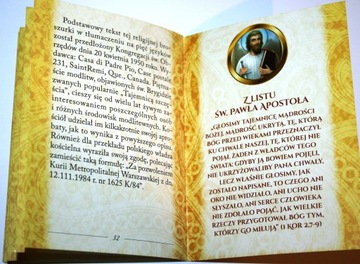 Podstawowy tekst tej religijnej bro-
szury w tłumaczeniu na pięć języków
został przedłożony Kongregacji św. Ob-
rzędów dnia 20 kwietnia 1950 roku. Wy-
dawca: Casa di Padre Pio, Case postale
231, SaintRemi, Que., Canada. Piętna-
ście modlitw, objawionych św. Brygidzie,
zwanych popularnie „Tajemnicą szczę-
ścia", cieszy się od wielu lat żywym za-
interesowaniem poszczególnych osób
i różnych środowisk modlitewnych. Ko-
ściół udzielał im kilkakrotnie swojej apro-
baty, jak to wynika z powyższego opisu.
Również dla przekładu polskiego władza
kościelna wyraziła swoją zgodę, polecając
zamieścić taką formułę: „Za pozwoleniem
Kurii Metropolitalnej Warszawskiej z dn.
12.111.1984 r. nr 1625 K/84".
32
Z LISTU
ŚW. PAWŁA APOSTOŁA
„GŁOSIMY TAJEMNICĘ MĄDROŚCI
BOŻEJ, MĄDROŚĆ UKRYTĄ, TĘ, KTÓRĄ
BÓG PRZED WIEKAMI PRZEZNACZYŁ
KU CHWALE NASZEJ, TĘ, KTÓREJ NIE
POJĄŁ ŻADEN Z WŁADCÓW TEGO
ŚWIATA; GDYBY JĄ BOWIEM POJĘLI,
NIE UKRZYŻOWALIBY PANA CHWAŁY,
LECZ WŁAŚNIE GŁOSIMY, JAK
ZOSTAŁO NAPISANE, TO CZEGO ANI
OKO NIE WIDZIAŁO, ANI UCHO NIE
SŁYSZAŁO, ANI SERCE CZŁOWIEKA
NIE ZDOŁAŁO POJĄĆ, JAK WIELKIE
RZECZY PRZYGOTOWAŁ BÓG TYM,
KTÓRZY GO MIŁUJĄ" (1 KOR 2,7-9)